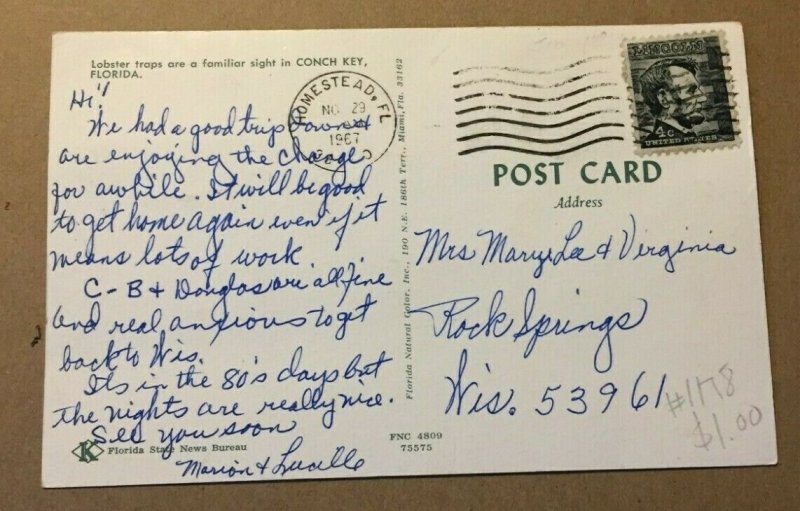 Lobster traps are a familiar sight in CONCH KEY,
FLORIDA.
Hi!
We had a good trip down &
are enjoying the change
for awhile. It will be good
to get home again even if it
means lots of work
C-B & Douglas are all fine
and real anxious to get
back to Wis.
Its in the 80's days but
the nights are really nice.
See you soon
Marion & Lucille
K
Florida State News Bureau
HOMESTEAD, FL
NO 29
1967
Florida Natural Color, Inc., 190 N.E. 186th Terr., Miami, Fla. 33162
FNC 4809
75575
LINCOLN
4c
UNITED STATES
POST CARD
Address
Mrs Mary Lee & Virginia
Rock Springs
Wis. 53961
#1178
$1.00